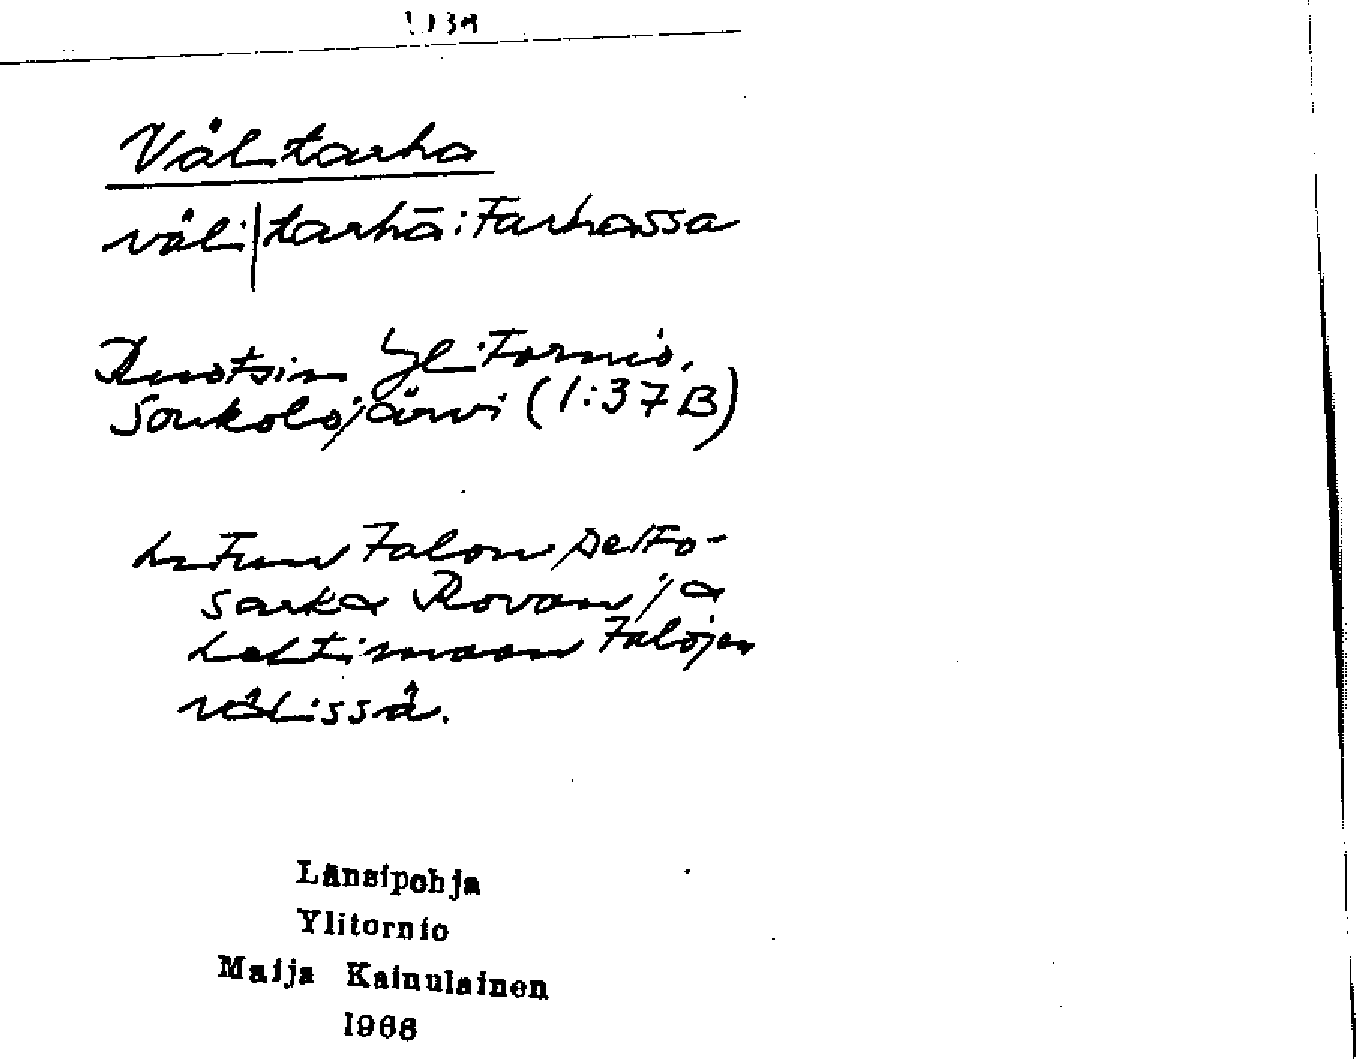 Välitarha
väli|tarhā: tarhassa
Ruotsin Ylitornio,
Soukolojärvi (1:37 B)
talon pelto-
sarka Rovan ja
Lehtimaan talojen
välissä.
Länsipohja
Ylitornio
Maija Kainulainen
1966